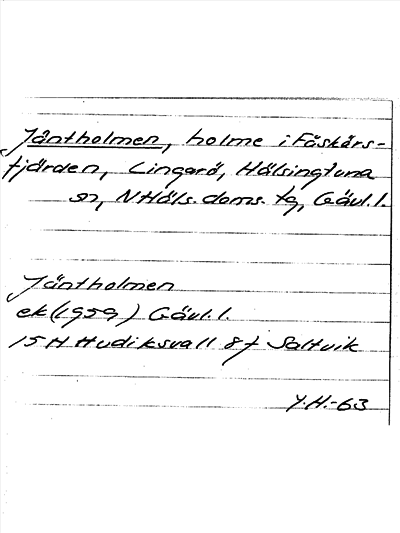 Jäntholmen, holme i Fåskärs-
fjärden, Lingarö, Hälsingtuna
sn, N Häls. doms. tg, Gävl. l.
Jäntholmen
ek (1959) Gävl. l.
15 H Hudiksvall 8 f Saltvik
Y.H.-63